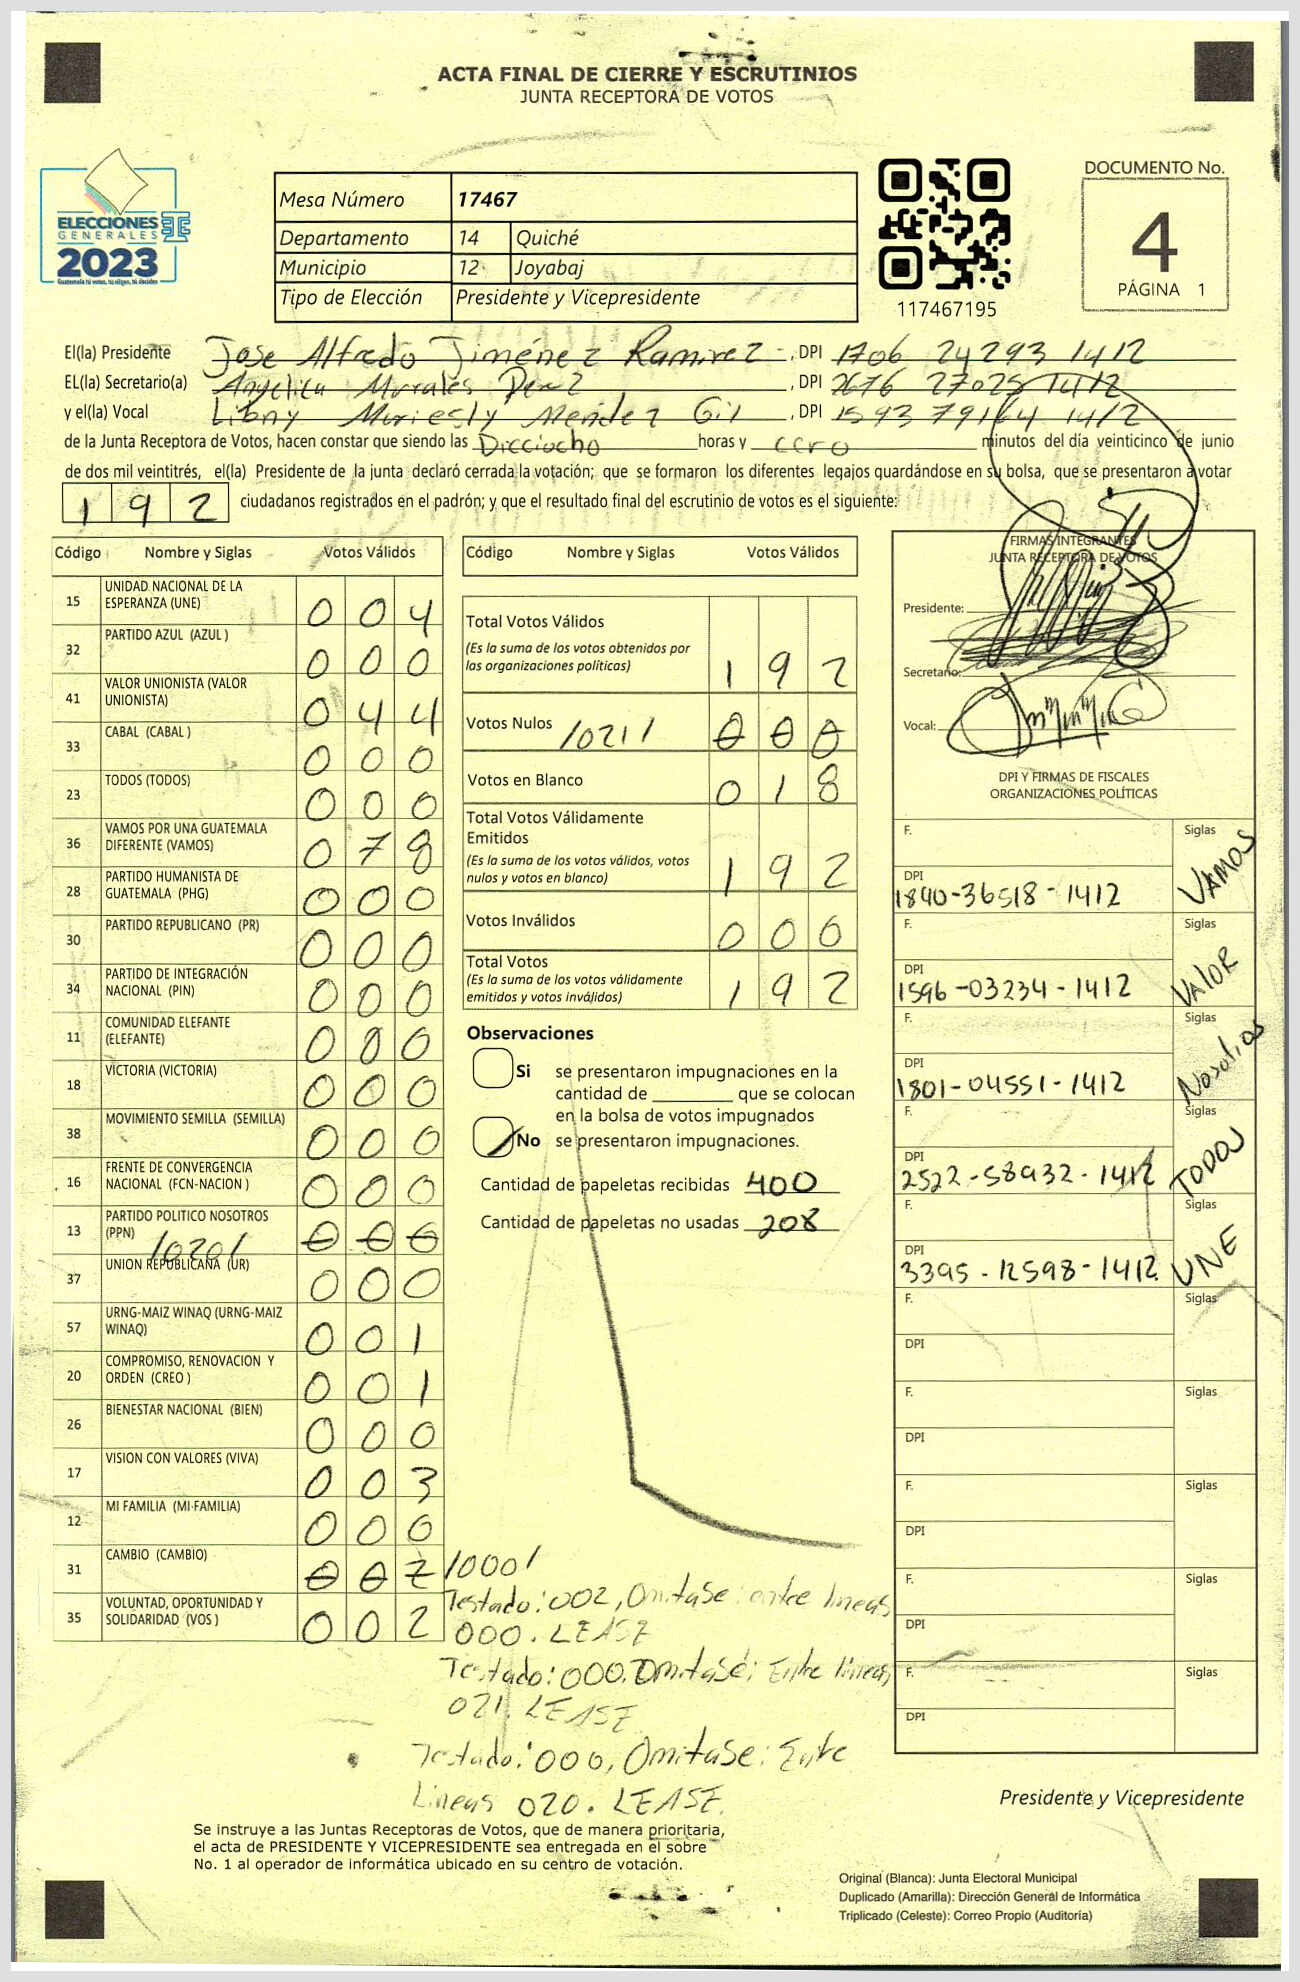 ACTA FINAL DE CIERRE Y ESCRUTINIOS
JUNTA RECEPTORA DE VOTOS
ELECCIONES
GENERALES
2023
Guatemala tú votas, tú eliges, tú decides
Mesa Número 17467
Departamento 14 Quiché
Municipio 12 Joyabaj
Tipo de Elección Presidente y Vicepresidente
117467195
DOCUMENTO No.
4
PÁGINA 1
El(la) Presidente Jose Alfredo Jiménez Ramirez - , DPI 1706 24293 1412
EL(la) Secretario(a) Angelica Morales Perez , DPI 2676 27025 1412
y el(la) Vocal Libny Moriesly Mendez Gil , DPI 1593 79164 1412
de la Junta Receptora de Votos, hacen constar que siendo las Dieciocho horas y cero minutos del día veinticinco de junio
de dos mil veintitrés, el(la) Presidente de la junta declaró cerrada la votación; que se formaron los diferentes legajos guardándose en su bolsa, que se presentaron a votar
192 ciudadanos registrados en el padrón; y que el resultado final del escrutinio de votos es el siguiente:
Código Nombre y Siglas Votos Válidos
15 UNIDAD NACIONAL DE LA ESPERANZA (UNE) 0 0 4
32 PARTIDO AZUL (AZUL ) 0 0 0
41 VALOR UNIONISTA (VALOR UNIONISTA) 0 4 4
33 CABAL (CABAL ) 0 0 0
23 TODOS (TODOS) 0 0 0
36 VAMOS POR UNA GUATEMALA DIFERENTE (VAMOS) 0 7 8
28 PARTIDO HUMANISTA DE GUATEMALA (PHG) 0 0 0
30 PARTIDO REPUBLICANO (PR) 0 0 0
34 PARTIDO DE INTEGRACIÓN NACIONAL (PIN) 0 0 0
11 COMUNIDAD ELEFANTE (ELEFANTE) 0 0 0
18 VICTORIA (VICTORIA) 0 0 0
38 MOVIMIENTO SEMILLA (SEMILLA) 0 0 0
16 FRENTE DE CONVERGENCIA NACIONAL (FCN-NACION ) 0 0 0
13 PARTIDO POLITICO NOSOTROS (PPN) /020/ 0 0 0
37 UNION REPUBLICANA (UR) 0 0 0
57 URNG-MAIZ WINAQ (URNG-MAIZ WINAQ) 0 0 1
20 COMPROMISO, RENOVACION Y ORDEN (CREO ) 0 0 1
26 BIENESTAR NACIONAL (BIEN) 0 0 0
17 VISION CON VALORES (VIVA) 0 0 3
12 MI FAMILIA (MI-FAMILIA) 0 0 0
31 CAMBIO (CAMBIO) 0 0 2 /000/
35 VOLUNTAD, OPORTUNIDAD Y SOLIDARIDAD (VOS ) 0 0 2
Código Nombre y Siglas Votos Válidos
Total Votos Válidos 1 9 2
(Es la suma de los votos obtenidos por
las organizaciones políticas)
Votos Nulos /021/ 0 0 0
Votos en Blanco 0 1 8
Total Votos Válidamente
Emitidos 1 9 2
(Es la suma de los votos válidos, votos
nulos y votos en blanco)
Votos Inválidos 0 0 0
Total Votos 1 9 2
(Es la suma de los votos válidamente
emitidos y votos inválidos)
Observaciones
Si se presentaron impugnaciones en la
cantidad de ________ que se colocan
en la bolsa de votos impugnados
No se presentaron impugnaciones.
Cantidad de papeletas recibidas 400
Cantidad de papeletas no usadas 208
Testado: 002, Omitase: entre lineas
000. LEASE
Testado: 000. Omitase: Entre lineas
021. LEASE
Testado: 000, Omitase: Entre
Lineas 020. LEASE.
FIRMAS INTEGRANTES
JUNTA RECEPTORA DE VOTOS
Presidente:
Secretario:
Vocal:
DPI Y FIRMAS DE FISCALES
ORGANIZACIONES POLÍTICAS
F. Siglas VAMOS
DPI 1840-36518-1412
F. Siglas VALOR
DPI 1596-03234-1412
F. Siglas Nosotros
DPI 1801-04551-1412
F. Siglas TODOS
DPI 2522-58932-1412
F. Siglas UNE
DPI 3395-12598-1412
F. Siglas
DPI
F. Siglas
DPI
F. Siglas
DPI
F. Siglas
DPI
F. Siglas
DPI
Presidente y Vicepresidente
Se instruye a las Juntas Receptoras de Votos, que de manera prioritaria,
el acta de PRESIDENTE Y VICEPRESIDENTE sea entregada en el sobre
No. 1 al operador de informática ubicado en su centro de votación.
Original (Blanca): Junta Electoral Municipal
Duplicado (Amarilla): Dirección General de Informática
Triplicado (Celeste): Correo Propio (Auditoría)